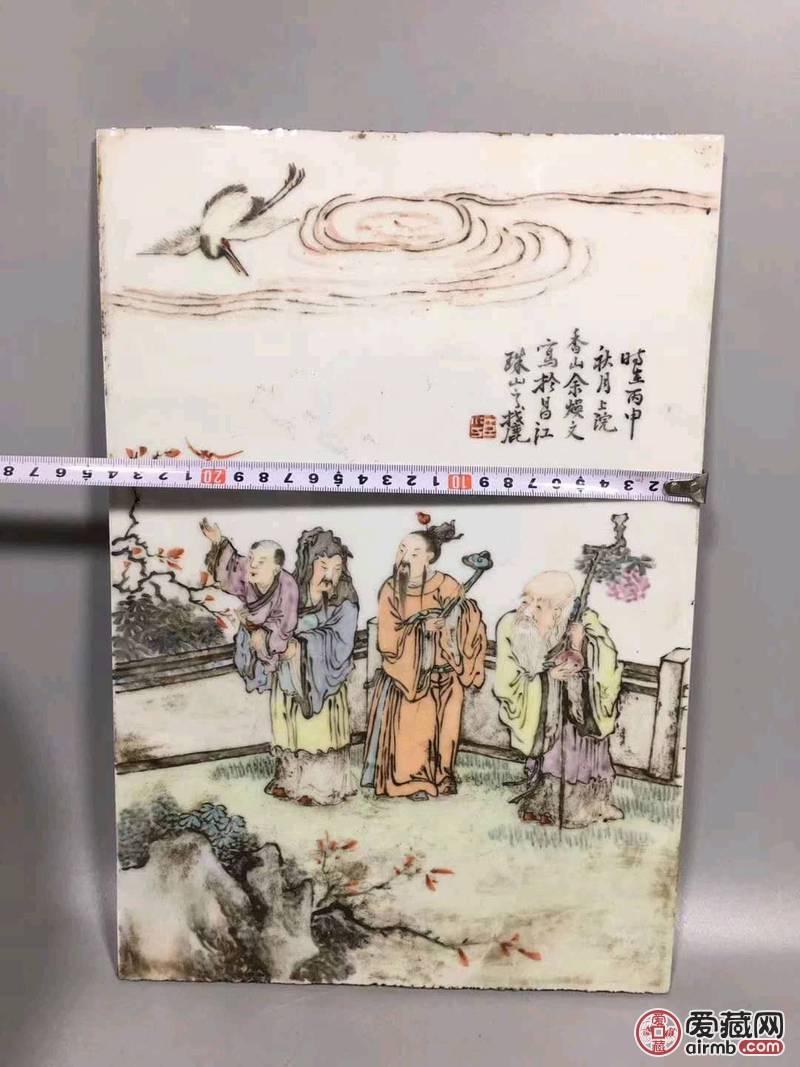 時在丙申
秋月上浣
香山余焕文
寫於昌江
珠山
8 7 6 5 4 3 2 1 20 9 8 7 6 5 4 3 2 1 10 9 8 7 6 5 4 3 2
爱藏网
airmb.com